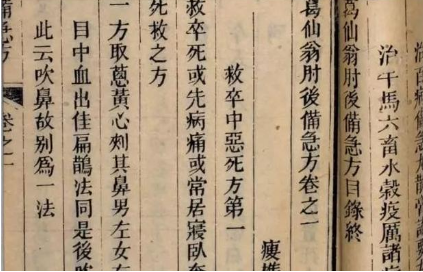 治牛馬六畜水穀疫厲諸
葛仙翁肘後備急方目錄終
葛仙翁肘後備急方卷之一
救卒中惡死方第一
救卒死或先病痛或常居寢臥奄
死救之方
一方取葱黃心刺其鼻男左女右
目中血出佳扁鵲法同是後
此云吹鼻故別為一法
備急方
卷之一